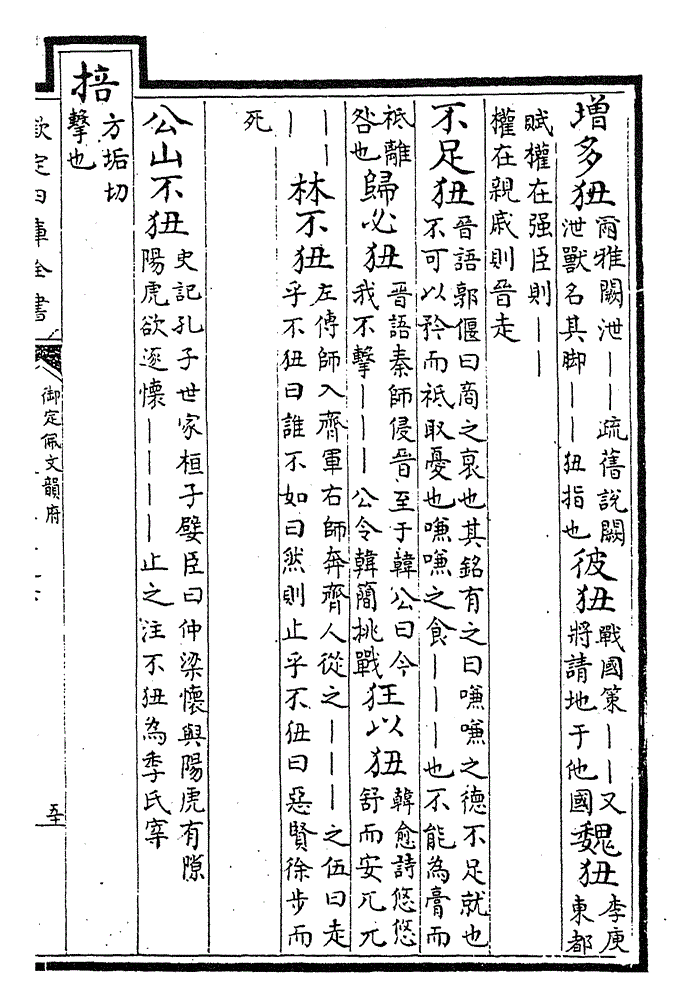 增多狃爾雅闕泄——疏舊說闕泄獸名其脚——狃指也彼狃戰國策——又將請地于他國魏狃李庾東都
賦權在强臣則——權在親戚則晉走
不足狃晉語郭偃曰商之衰也其銘有之曰嗛嗛之德不足就也不可以矜而祗取憂也嗛嗛之食———也不能為膏而
祗離咎也歸必狃晉語秦師侵晉至于韓公曰今我不擊———公令韓簡挑戰狂以狃韓愈詩悠悠舒而安兀兀
———林不狃左傳師入齊軍右師奔齊人從之———之伍曰走乎不狃曰誰不如曰然則止乎不狃曰惡賢徐步而
死
公山不狃史記孔子世家桓子嬖臣曰仲梁懷與陽虎有隙陽虎欲逐懷————止之注不狃為季氏宰
掊方垢切擊也
欽定四庫全書
御定佩文韻府